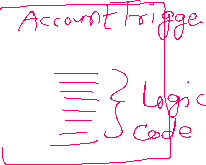 Account Trigge
Logic
Code